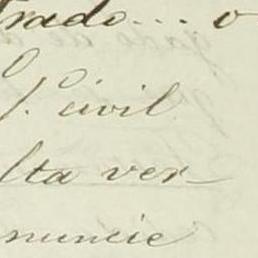 trado... o
S. civil
lta ver-
nuncie